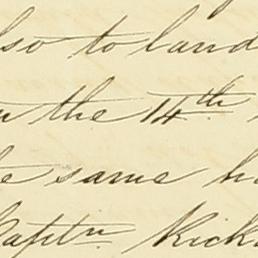 also to land
the 14th
same
Captn Rick